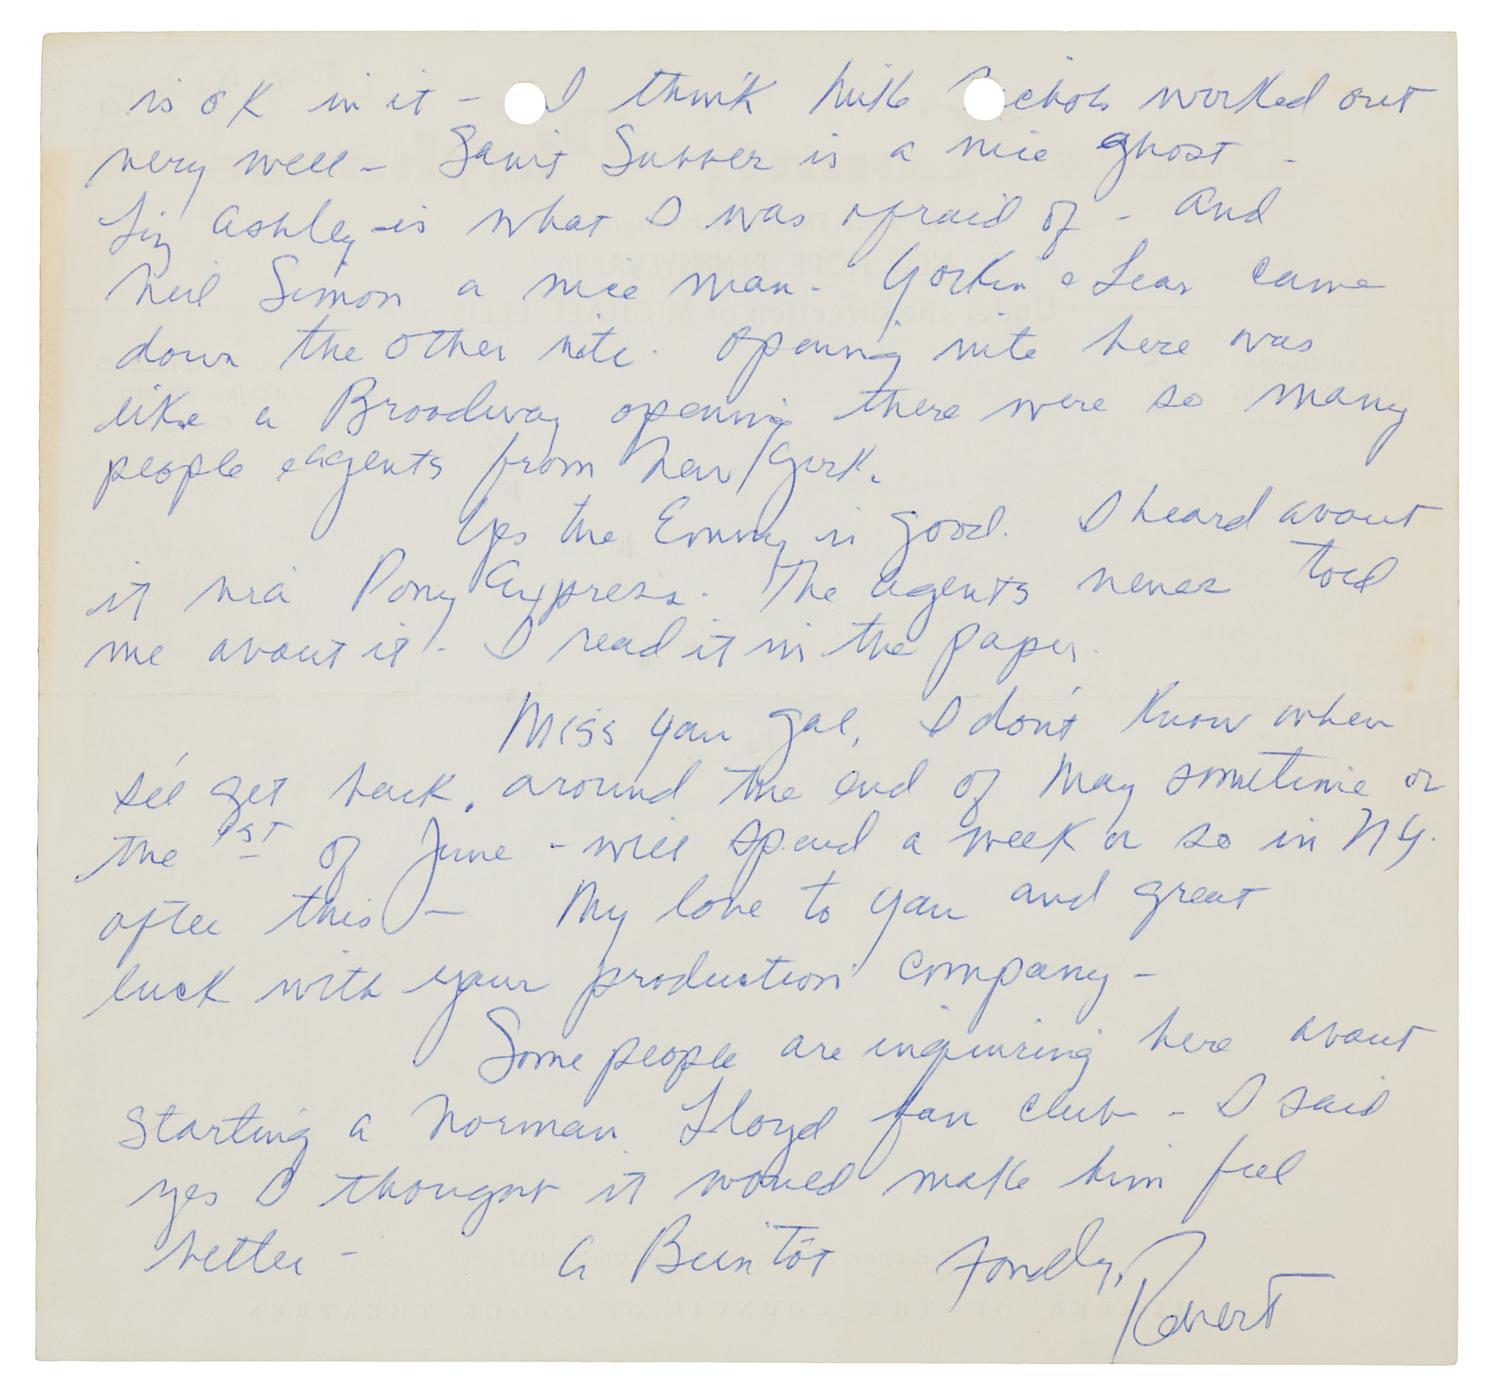 is OK in it - I think Mike Nichols worked out
very well - Saint Subber is a nice ghost -
Liz Ashley - is what I was afraid of - and
Neil Simon a nice man. Yorkin & Lear came
down the other nite. Opening nite here was
like a Broadway opening there were so many
people & agents from New York.
Yes the Emmy is good. I heard about
it via Pony Express. The agents never told
me about it - I read it in the paper.
Miss you gal, I don't know when
I'll get back, around the end of May sometime or
the 1st of June - will spend a week or so in N.Y.
after this - My love to you and great
luck with your production company -
Some people are inquiring here about
starting a Norman Lloyd fan club - I said
yes I thought it would make him feel
better - A Bientôt Fondly,
Robert